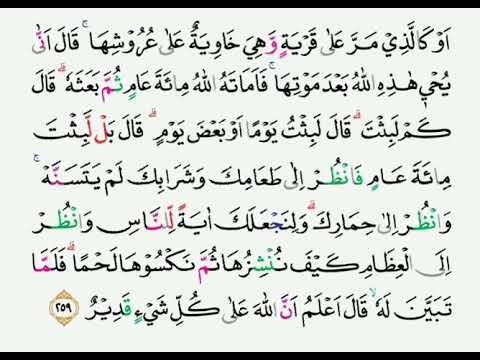 اَوْ كَالَّذِيْ مَرَّ عَلٰى قَرْيَةٍ وَّهِيَ خَاوِيَةٌ عَلٰى عُرُوْشِهَاۚ قَالَ اَنّٰى
يُحْيٖ هٰذِهِ اللّٰهُ بَعْدَ مَوْتِهَاۚ فَاَمَاتَهُ اللّٰهُ مِائَةَ عَامٍ ثُمَّ بَعَثَهٗۗ قَالَ
كَمْ لَبِثْتَۗ قَالَ لَبِثْتُ يَوْمًا اَوْ بَعْضَ يَوْمٍۗ قَالَ بَلْ لَّبِثْتَ
مِائَةَ عَامٍ فَانْظُرْ اِلٰى طَعَامِكَ وَشَرَابِكَ لَمْ يَتَسَنَّهْۚ
وَانْظُرْ اِلٰى حِمَارِكَۗ وَلِنَجْعَلَكَ اٰيَةً لِّلنَّاسِ وَانْظُرْ
اِلَى الْعِظَامِ كَيْفَ نُنْشِزُهَا ثُمَّ نَكْسُوْهَا لَحْمًاۗ فَلَمَّا
تَبَيَّنَ لَهٗۙ قَالَ اَعْلَمُ اَنَّ اللّٰهَ عَلٰى كُلِّ شَيْءٍ قَدِيْرٌ ٢٥٩